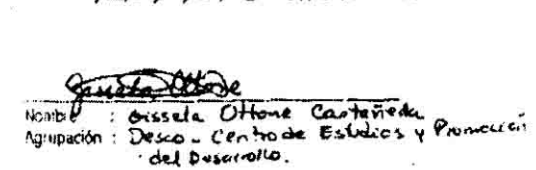 Gissela Ottone
Nombre : Gissela Ottone Castañeda
Agrupación : Desco - Centro de Estudios y Promoción
del Desarrollo.